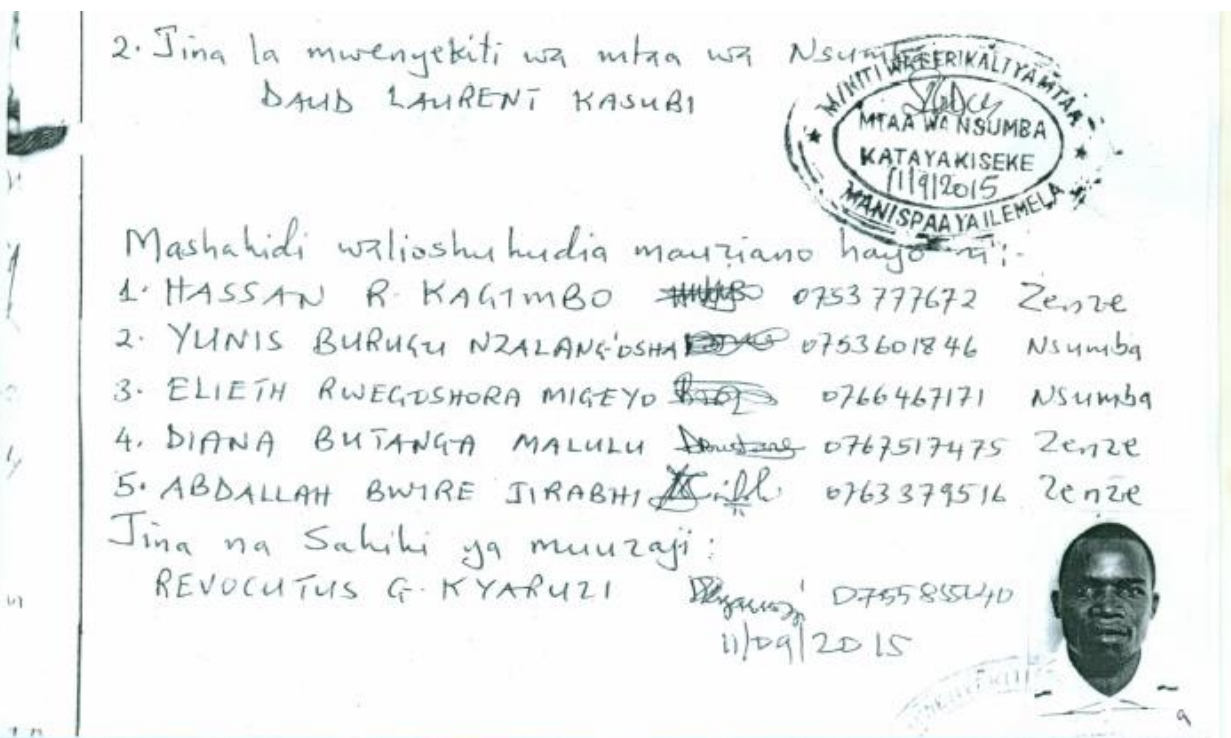 2. Jina la mwenyekiti wa mtaa wa Nsumba
DAUD LAURENT KASUBI
M/KITI WA SERIKALI YA MTAA
MTAA WA NSUMBA
KATA YA KISEKE
11/9/2015
MANISPAA YA ILEMELA
Mashahidi walioshuhudia mauziano hayo ni:-
1. HASSAN R. KAGIMBO 0753 777672 Zenze
2. YUNIS BURUGU NZALANG'OSHA 0753601846 Nsumba
3. ELIETH RWEGOSHORA MIGEYO 0766467171 Nsumba
4. DIANA BUTANGA MALULU 0767517475 Zenze
5. ABDALLAH BWIRE JIRABHI 0763379516 Zenze
Jina na Sahihi ya muuzaji:
REVOCUTUS G. KYARUZI
11/09/2015